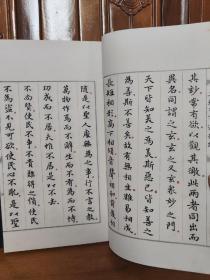 其妙常有欲觀其徼此兩者同出而
異名同謂之玄玄之又玄眾妙之門
天下皆知美之為美斯惡已皆知善之
為善斯不善矣故有無相生難易相成
長短相形高下相傾音聲相和前後相
隨是以聖人處無為之事行不言之教
萬物作焉而不辭生而不有為而不恃
功成而不居夫唯不居是以不去
不尚賢使民不爭不貴難得之貨使民
不為盜不見可欲使民心不亂是以聖